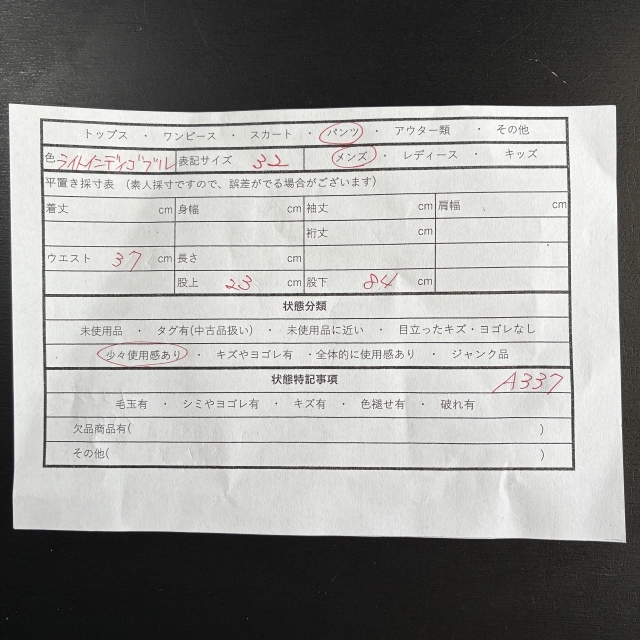 トップス ・ ワンピース ・ スカート ・ パンツ ・ アウター類 ・ その他
色 ライトインディゴブル 表記サイズ 32 メンズ ・ レディース ・ キッズ
平置き採寸表 (素人採寸ですので、誤差がでる場合がございます)
着丈 cm 身幅 cm 袖丈 cm 肩幅 cm
裄丈 cm
ウエスト 37 cm 長さ cm
股上 23 cm 股下 84 cm
状態分類
未使用品 ・ タグ有(中古品扱い) ・ 未使用品に近い ・ 目立ったキズ・ヨゴレなし
少々使用感あり ・ キズやヨゴレ有 ・全体的に使用感あり ・ ジャンク品
状態特記事項 A337
毛玉有 ・ シミやヨゴレ有 ・ キズ有 ・ 色褪せ有 ・ 破れ有
欠品商品有( )
その他( )